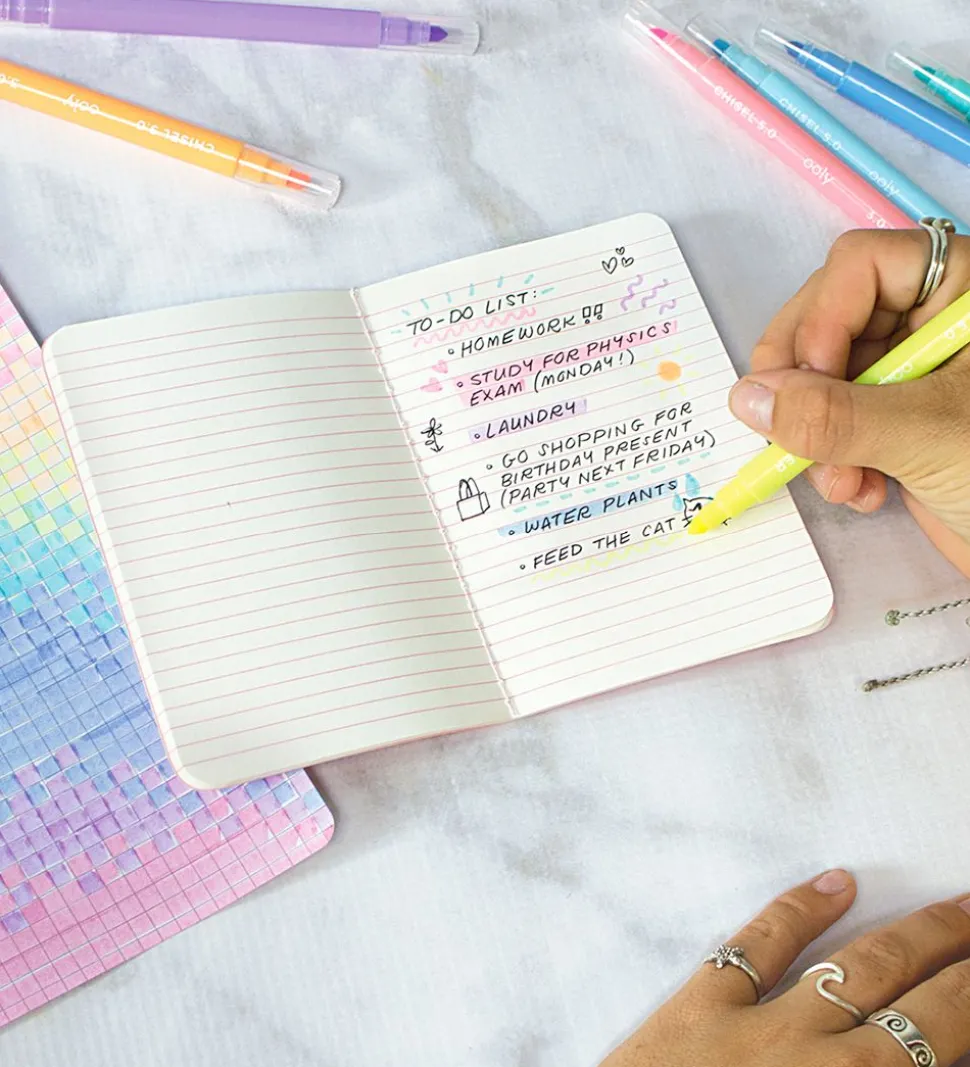 CHISEL 5.0
ooly
5.0
CHISEL 5.0
ooly
5.0
CHISEL 5.0
ooly
TO-DO LIST:
• HOMEWORK !!
• STUDY FOR PHYSICS
EXAM (MONDAY!)
• LAUNDRY
• GO SHOPPING FOR
BIRTHDAY PRESENT
(PARTY NEXT FRIDAY)
• WATER PLANTS
• FEED THE CAT